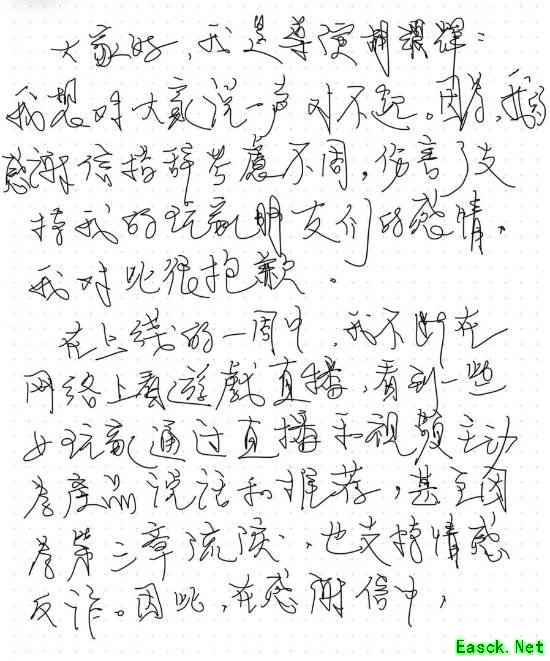 大家好，我是導演胡澤輝：
我想对大家说一声对不起。因为，我的
感謝信措辞考慮不周，伤害了支
持我的玩家朋友们的感情，
我对此很抱歉。
在上线的一周中，我不断在
网络上看遊戲直播，看到一些
女玩家通过直播和視頻主动
为產品说话和推荐，甚至因
为第三章流泪，也支持情感
反诈。因此，在感謝信中，
Easck.Net